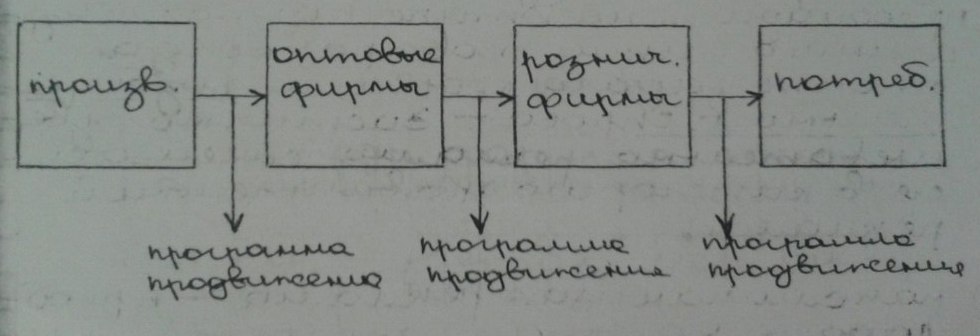 произв.
оптовые
фирмы
рознич.
фирмы
потреб.
программа
продвижения
программа
продвижения
программа
продвижения